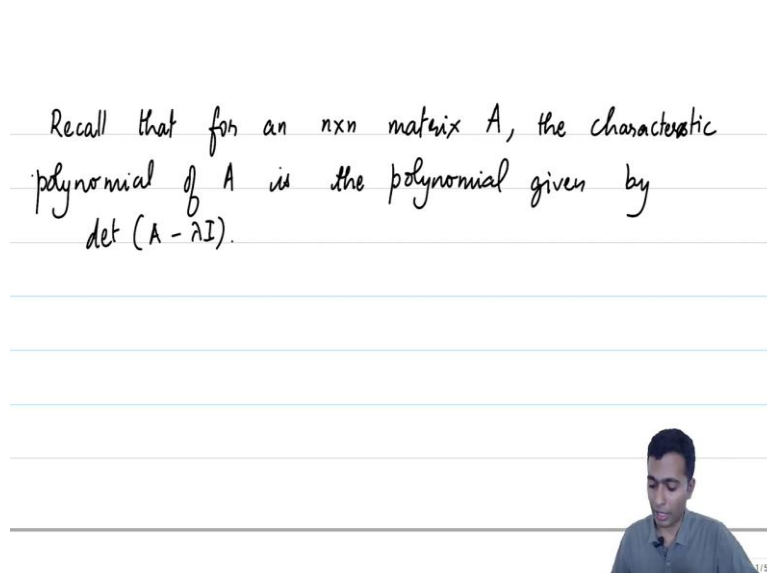 Recall that for an n×n matrix A, the characterstic
polynomial of A is the polynomial given by
det (A - λI).
1/5